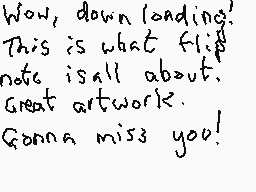 Wow, down loading!
This is what flip
note is all about.
Great artwork.
Gonna miss you!